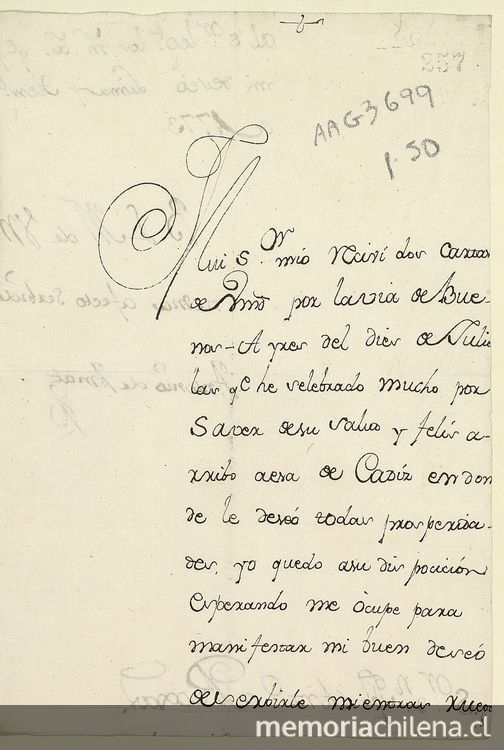 257
AAG3699
1-50
Mui S.r mio Reciví dos cartas
de Vmd por la via de Bue-
nos-Ayres del dies de Julio
las q.e he selebrado mucho por
Saver de su salud y felis a-
rribo aesa de Cadiz en don
de le deseó todas prosperida-
des, yo quedo asu dispocicion
esperando me òcupe para
manifestar mi buen deseó
de serbirle mientras
memoriachilena.cl